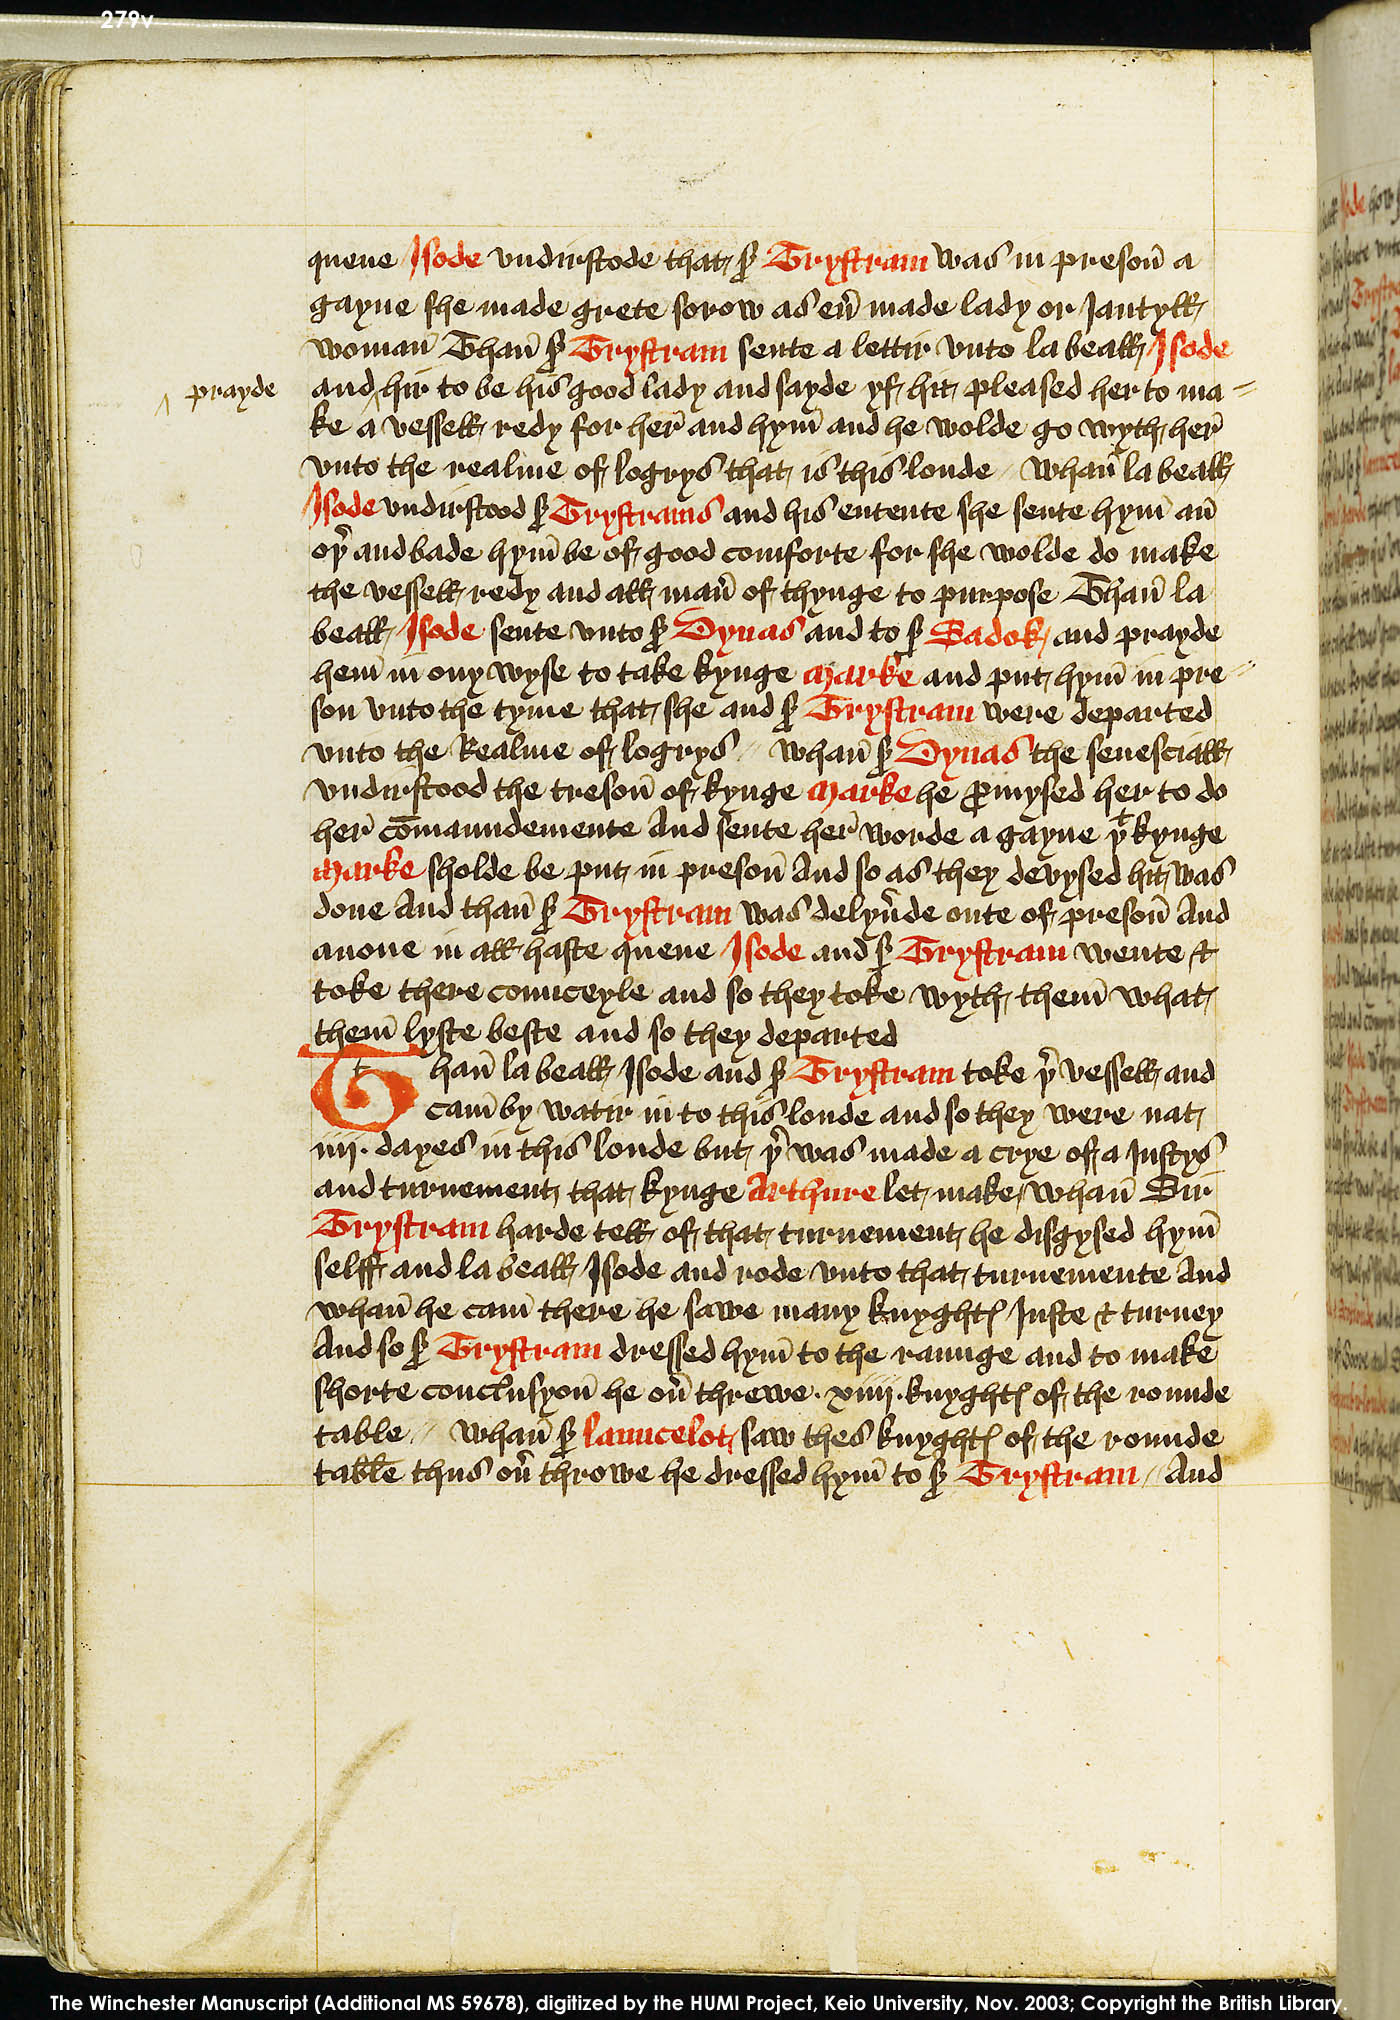 279v
quene Isode vndirstode that sr Trystram was in preson̄ a
gayne she made grete sorow as eū made lady or Jantyll
woman̄ Than̄ sr Trystram sente a lettir vnto la beall Isode
prayde
and ^ hir to be his good lady and sayde yf hit pleased her to ma=
ke a vessell redy for her̄ and hym̄ and he wolde go wyth her̄
vnto the realme of logrys that is this londe // whan̄ la beall
Isode vndirstood sr Trystrams and his entente she sente hym̄ an̄
oþr and bade hym̄ be of good comforte for she wolde do make
the vessell redy and all man̄ of thynge to purpose Than̄ la
beall Isode sente vnto sr Dynas and to sr Sadok and prayde
hem̄ in ony wyse to take kynge Marke and put hym̄ in pre=
son vnto the tyme that she and sr Trystram were departed
vnto the Realme of logrys // whan̄ sr Dynas the senesciall
vndirstood the treson̄ of kynge Marke he ꝓmysed her to do
her̄ com̄aundemente And sente her̄ worde a gayne þt kynge
Marke sholde be put in preson̄ And so as they devysed hit was
done And than̄ sr Trystram was delyūde oute of preson̄ And
anone in all haste quene Isode and sr Trystram wente &
toke there counceyle and so they toke wyth them̄ what
them̄ lyste beste and so they departed
Than̄ la beall Isode and sr Trystram toke þr vessell and
cam̄ by watir in to this londe and so they were nat
iiij. dayes in this londe but þr was made a crye of a Justys
and turnement that kynge Arthure let make / whan̄ Sir
Trystram harde tell of that turnement he disgysed hym̄
selff and la beall Isode and rode vnto that turnemente And
whan̄ he cam̄ there he sawe many knyghtꝭ Juste & turney
And so sr Trystram dressed hym̄ to the raunge and to make
shorte conclusyon̄ he oū threwe . xiiij . knyghtꝭ of the rounde
table // whan̄ sr launcelot saw thes knyghtꝭ of the rounde
table thus oū throwe he dressed hym̄ to sr Trystram // And
The Winchester Manuscript (Additional MS 59678), digitized by the HUMI Project, Keio University, Nov. 2003; Copyright the British Library.